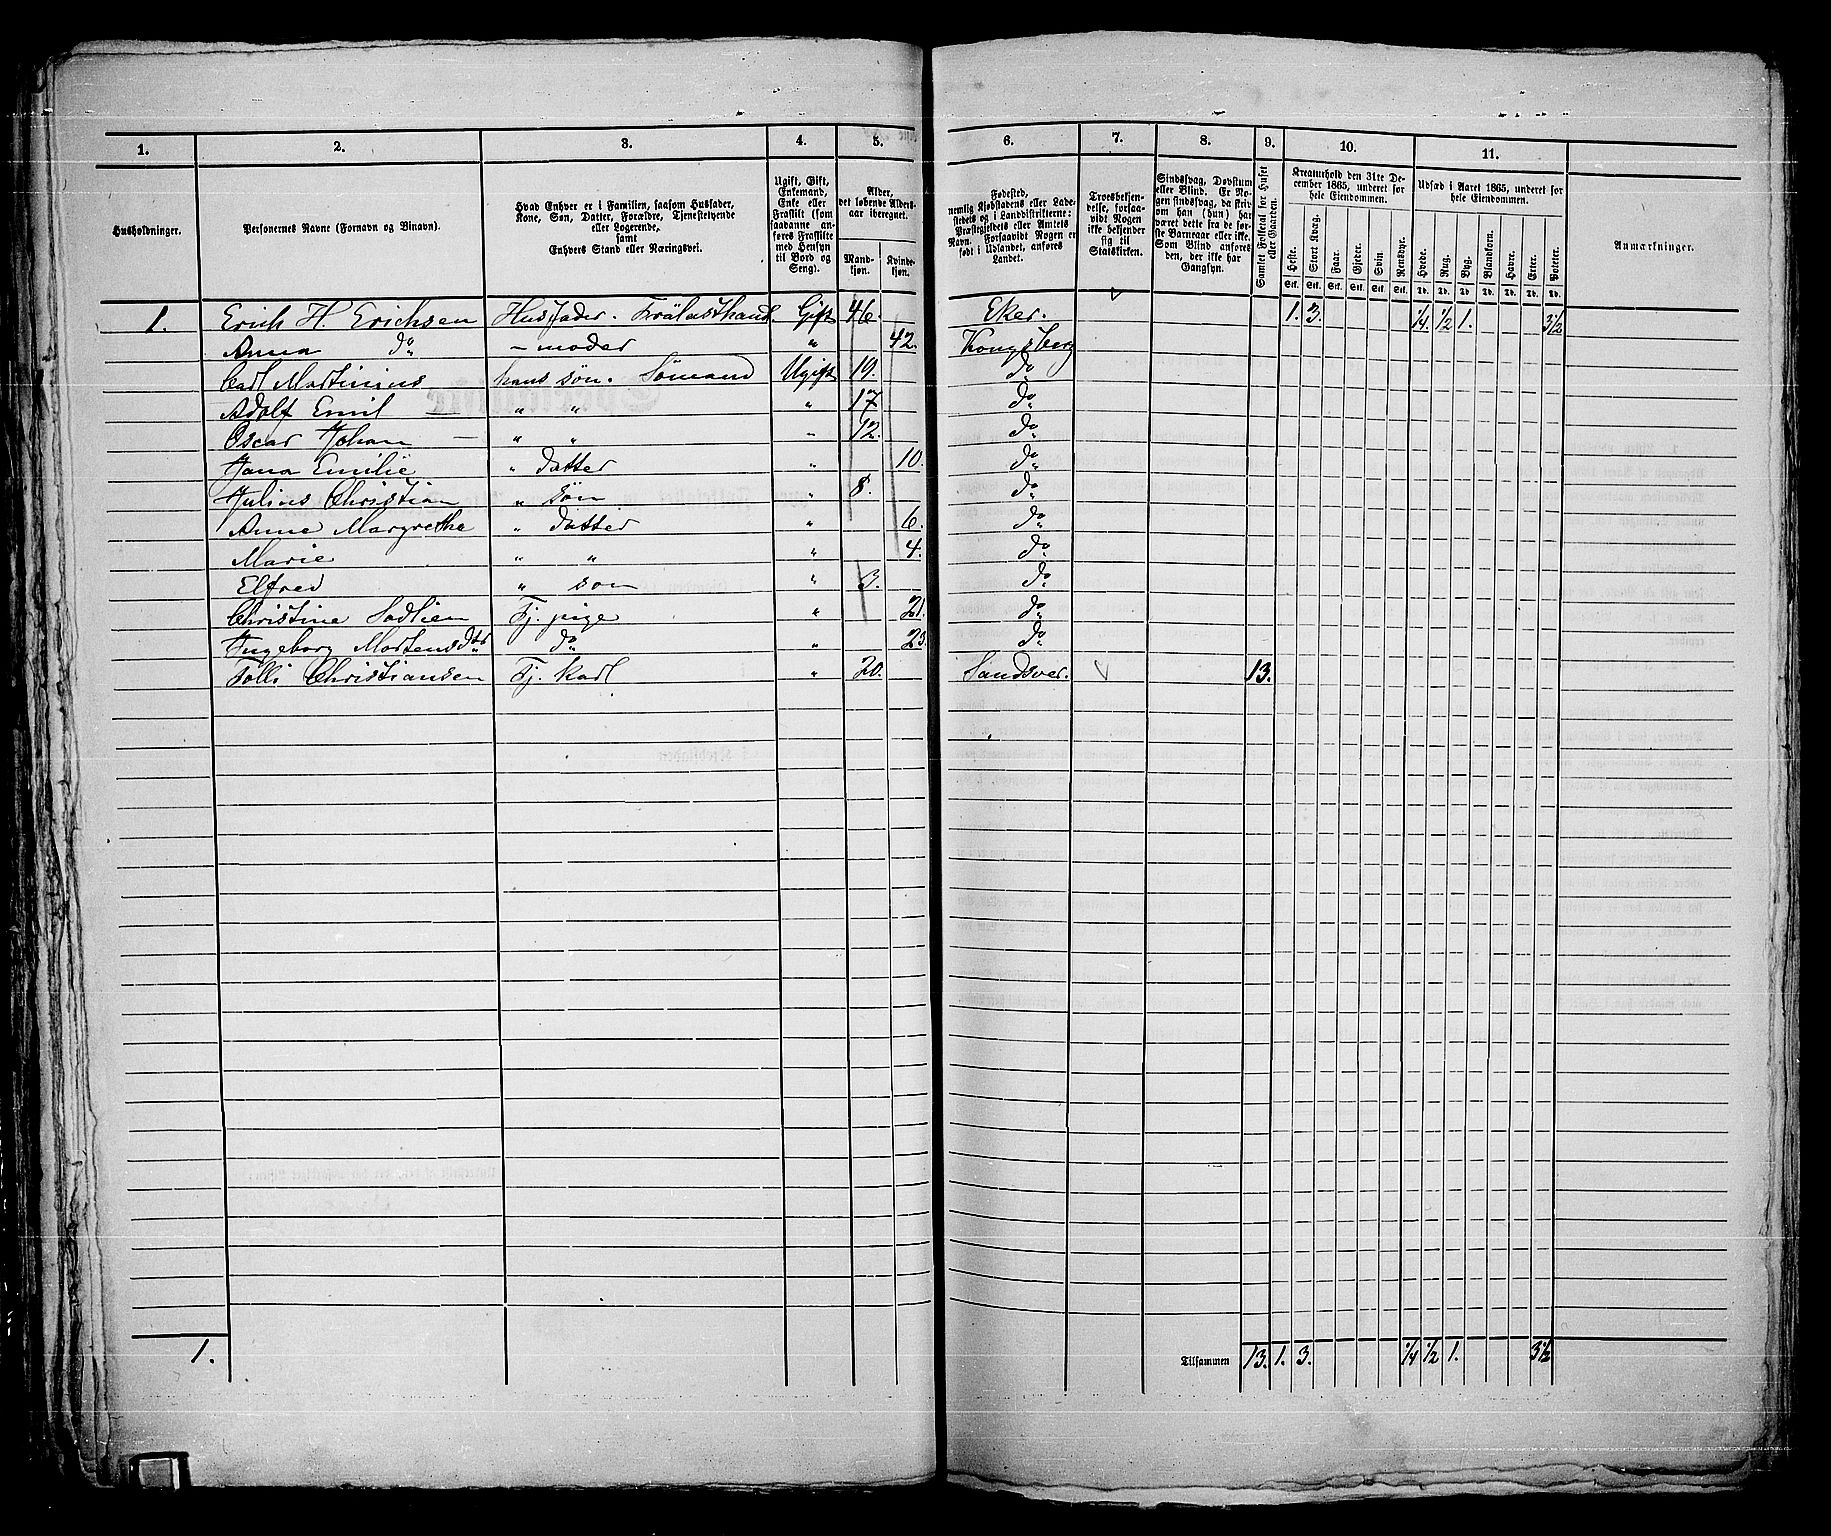 1. 2. 3. 4. 5. 6. 7. 8. 9. 10. 11.
Husholdninger.
Personernes Navne (Fornavn og Binavn).
Hvad Enhver er i Familien, saasom Husfader,
Kone, Søn, Datter, Forældre, Tjenestetyende
eller Logerende,
samt
Enhvers Stand eller Næringsvei.
Ugift, Gift,
Enkemand,
Enke eller
Fraskilt (som
saadanne an-
føres Fraskilte
med Hensyn
til Bord og
Seng).
Alder,
det løbende Alders-
aar iberegnet.
Mand-
kjøn.
Kvinde-
kjøn.
Fødested,
nemlig Kjøbstadens eller Lade-
stedets og i Landdistrikterne:
Præstegjeldets eller Amtets
Navn. Forsaavidt Nogen er
født i Udlandet, anføres
Landet.
Troesbekjen-
delse, forsaa-
vidt Nogen
ikke bekjender
sig til
Statskirken.
Sindssvag, Døvstum
eller Blind. Er No-
gen sindssvag, da skriv
om han (hun) har
været dette fra de før-
ste Barneaar eller ikke.
Som Blind anføres
den, der ikke har
Gangsyn.
Samlet Folketal for Huset
eller Gaarden.
Kreaturhold den 31te De-
cember 1865, underet før
hele Eiendommen.
Heste. Stort Kvæg. Faar. Gjeder. Svin. Rensdyr.
Stk. Stk. Stk. Stk. Stk. Stk.
Udsæd i Aaret 1865, underet før
hele Eiendommen.
Hvede. Rug. Byg. Blandkorn. Havre. Erter. Poteter.
Td. Td. Td. Td. Td. Td. Td.
Anmærkninger.
1. Erich H. Erichsen Husfader. Trälasthand. Gift 46. Eker. 1. 3. 1/4. 1/2 1. 3 1/2
Anna do - moder " 42. Kongsberg
Carl Martinius hans søn. Sömand Ugift 19. do
Adolf Emil — " " " 17 do
Oscar Johan — " " " 12. do
Jana Emilie " datter " 10. do
Julius Christian " søn " 8. do
Anne Margrethe " datter " 6. do
Marie " " " 4. do
Elfred " son " 3. do
Christine Tj. pige " 21. do
Ingeborg Mortensdtr do " 23. do
Tolli Christiansen Tj. Karl " 20. Sandsver. 13.
1. Tilsammen 13. 1. 3. 1/4 1/2 1. 3 1/2